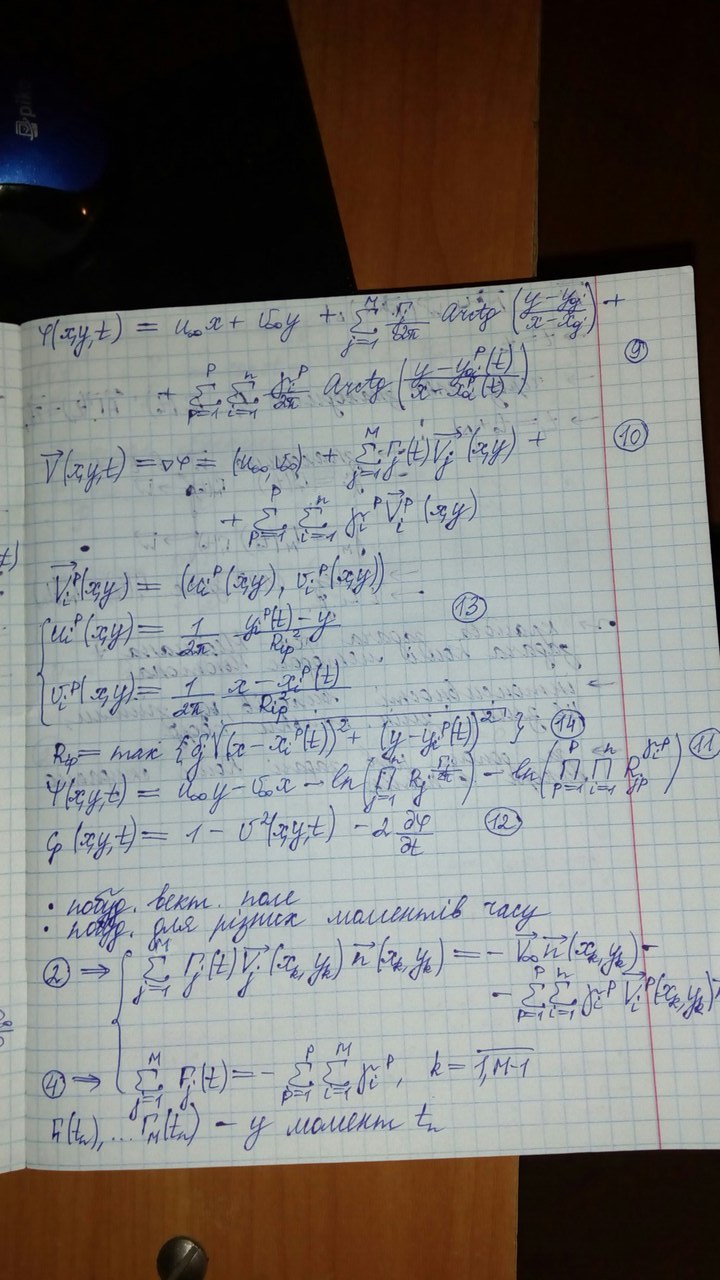 φ(x,y,t) = u∞x + v∞y + Σ_{j=1}^{M} Γj/2π Arctg ((y − yoj)/(x − xoj)) +
+ Σ_{p=1}^{P} Σ_{i=1}^{n} γi^p/2π Arctg ((y − yoi^p(t))/(x − xoi^p(t))) (9)
V⃗(x,y,t) = ∇φ = (u∞, v∞) + Σ_{j=1}^{M} Γj(t) V⃗j(x,y) + (10)
+ Σ_{p=1}^{P} Σ_{i=1}^{n} γi^p V⃗i^p (x,y)
V⃗i^p(x,y) = (ui^p(x,y), vi^p(x,y))
{ ui^p(x,y) = 1/2π (yi^p(t) − y)/Rip² (13)
vi^p(x,y) = 1/2π (x − xi^p(t))/Rip²
Rip = max {δ; √((x − xi^p(t))² + (y − yi^p(t))²)} (14)
Ψ(x,y,t) = u∞y − v∞x − ln(Π_{j=1}^{M} Rj^{Γj/2π}) − ln(Π_{p=1}^{P} Π_{i=1}^{n} Rjp^{γi^p}) (11)
Cp(x,y,t) = 1 − v²(x,y,t) − 2 ∂φ/∂t (12)
• побуд. вект. поле
• побуд. для різних моментів часу
(2) ⇒ { Σ_{j=1}^{M} Γj(t) V⃗j(xk, yk) n⃗(xk, yk) = − V⃗∞ n⃗(xk, yk) −
− Σ_{p=1}^{P} Σ_{i=1}^{n} γi^p V⃗i^p(xk, yk)
(4) ⇒ Σ_{j=1}^{M} Γj(t) = − Σ_{p=1}^{P} Σ_{i=1}^{M} γi^p, k = 1,M-1
Γ1(tn), ... ΓM(tn) - у момент tn